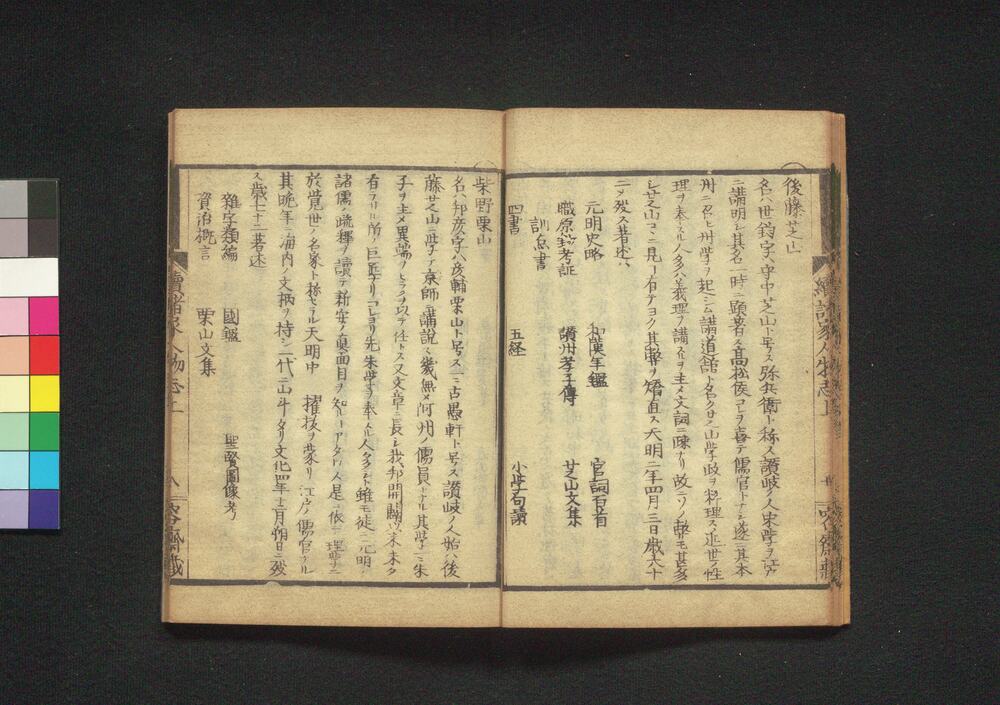 後藤芝山
名ハ世鈞字ハ守中芝山ト号ス弥兵衛ト称ス讃岐ノ人宋学ヲ江戸
ニ講明シ其名一時ニ顕著ス高松侯コレヲ喜テ儒官トナシ遂ニ其本
州ニ召ヒ州学ヲ起シム講道館ト名ク芝山学政ヲ督理ス近世ノ性
理ヲ奉スル人多ハ義理ヲ講スルヲ主メ文詞ニ疎ナリ故ニソノ弊モ甚多
シ芝山コヽニ見ル有テヨク其弊ヲ矯直ス天明二年四月三日歳六十
二メ歿ス著述ハ
元明史略 和漢年鑑 官詞百首
職原鈔考証 讃州孝子傳 芝山文集
訓点書
四書 五経 小学句讀
柴野栗山
名ハ邦彦字ハ彦輔栗山ト号ス一ニ古愚軒ト号ス讃岐ノ人始ハ後
藤芝山ニ学ヒ京師ニ講説ス幾無メ阿州ノ儒員トナル其学ニ朱
子ヲ主メ異端ヲヒラクヲ以テ任トス又文章ニ長シ我邦開闢以来未タ
有ラサル所ノ巨匠ナリコレヨリ先朱学ヲ奉スル人多シト雖モ徒ニ元明ノ
諸儒ノ疏釋ヲ讀テ新安ノ真面目ヲ知ルコアタハス人是ニ依テ理学ニ
於覚世ノ名家ト称セラル天明中 擢抜ヲ蒙リ江戸ノ儒官タル
其晩年ニ海内ノ文柄ヲ持シ一代ニ山斗タリ文化四年十二月朔日ニ歿
ス歳七十二著述
雜字類編 國鑑 聖賢圖像考
資治概言 栗山文集
續諸家人物志上
八